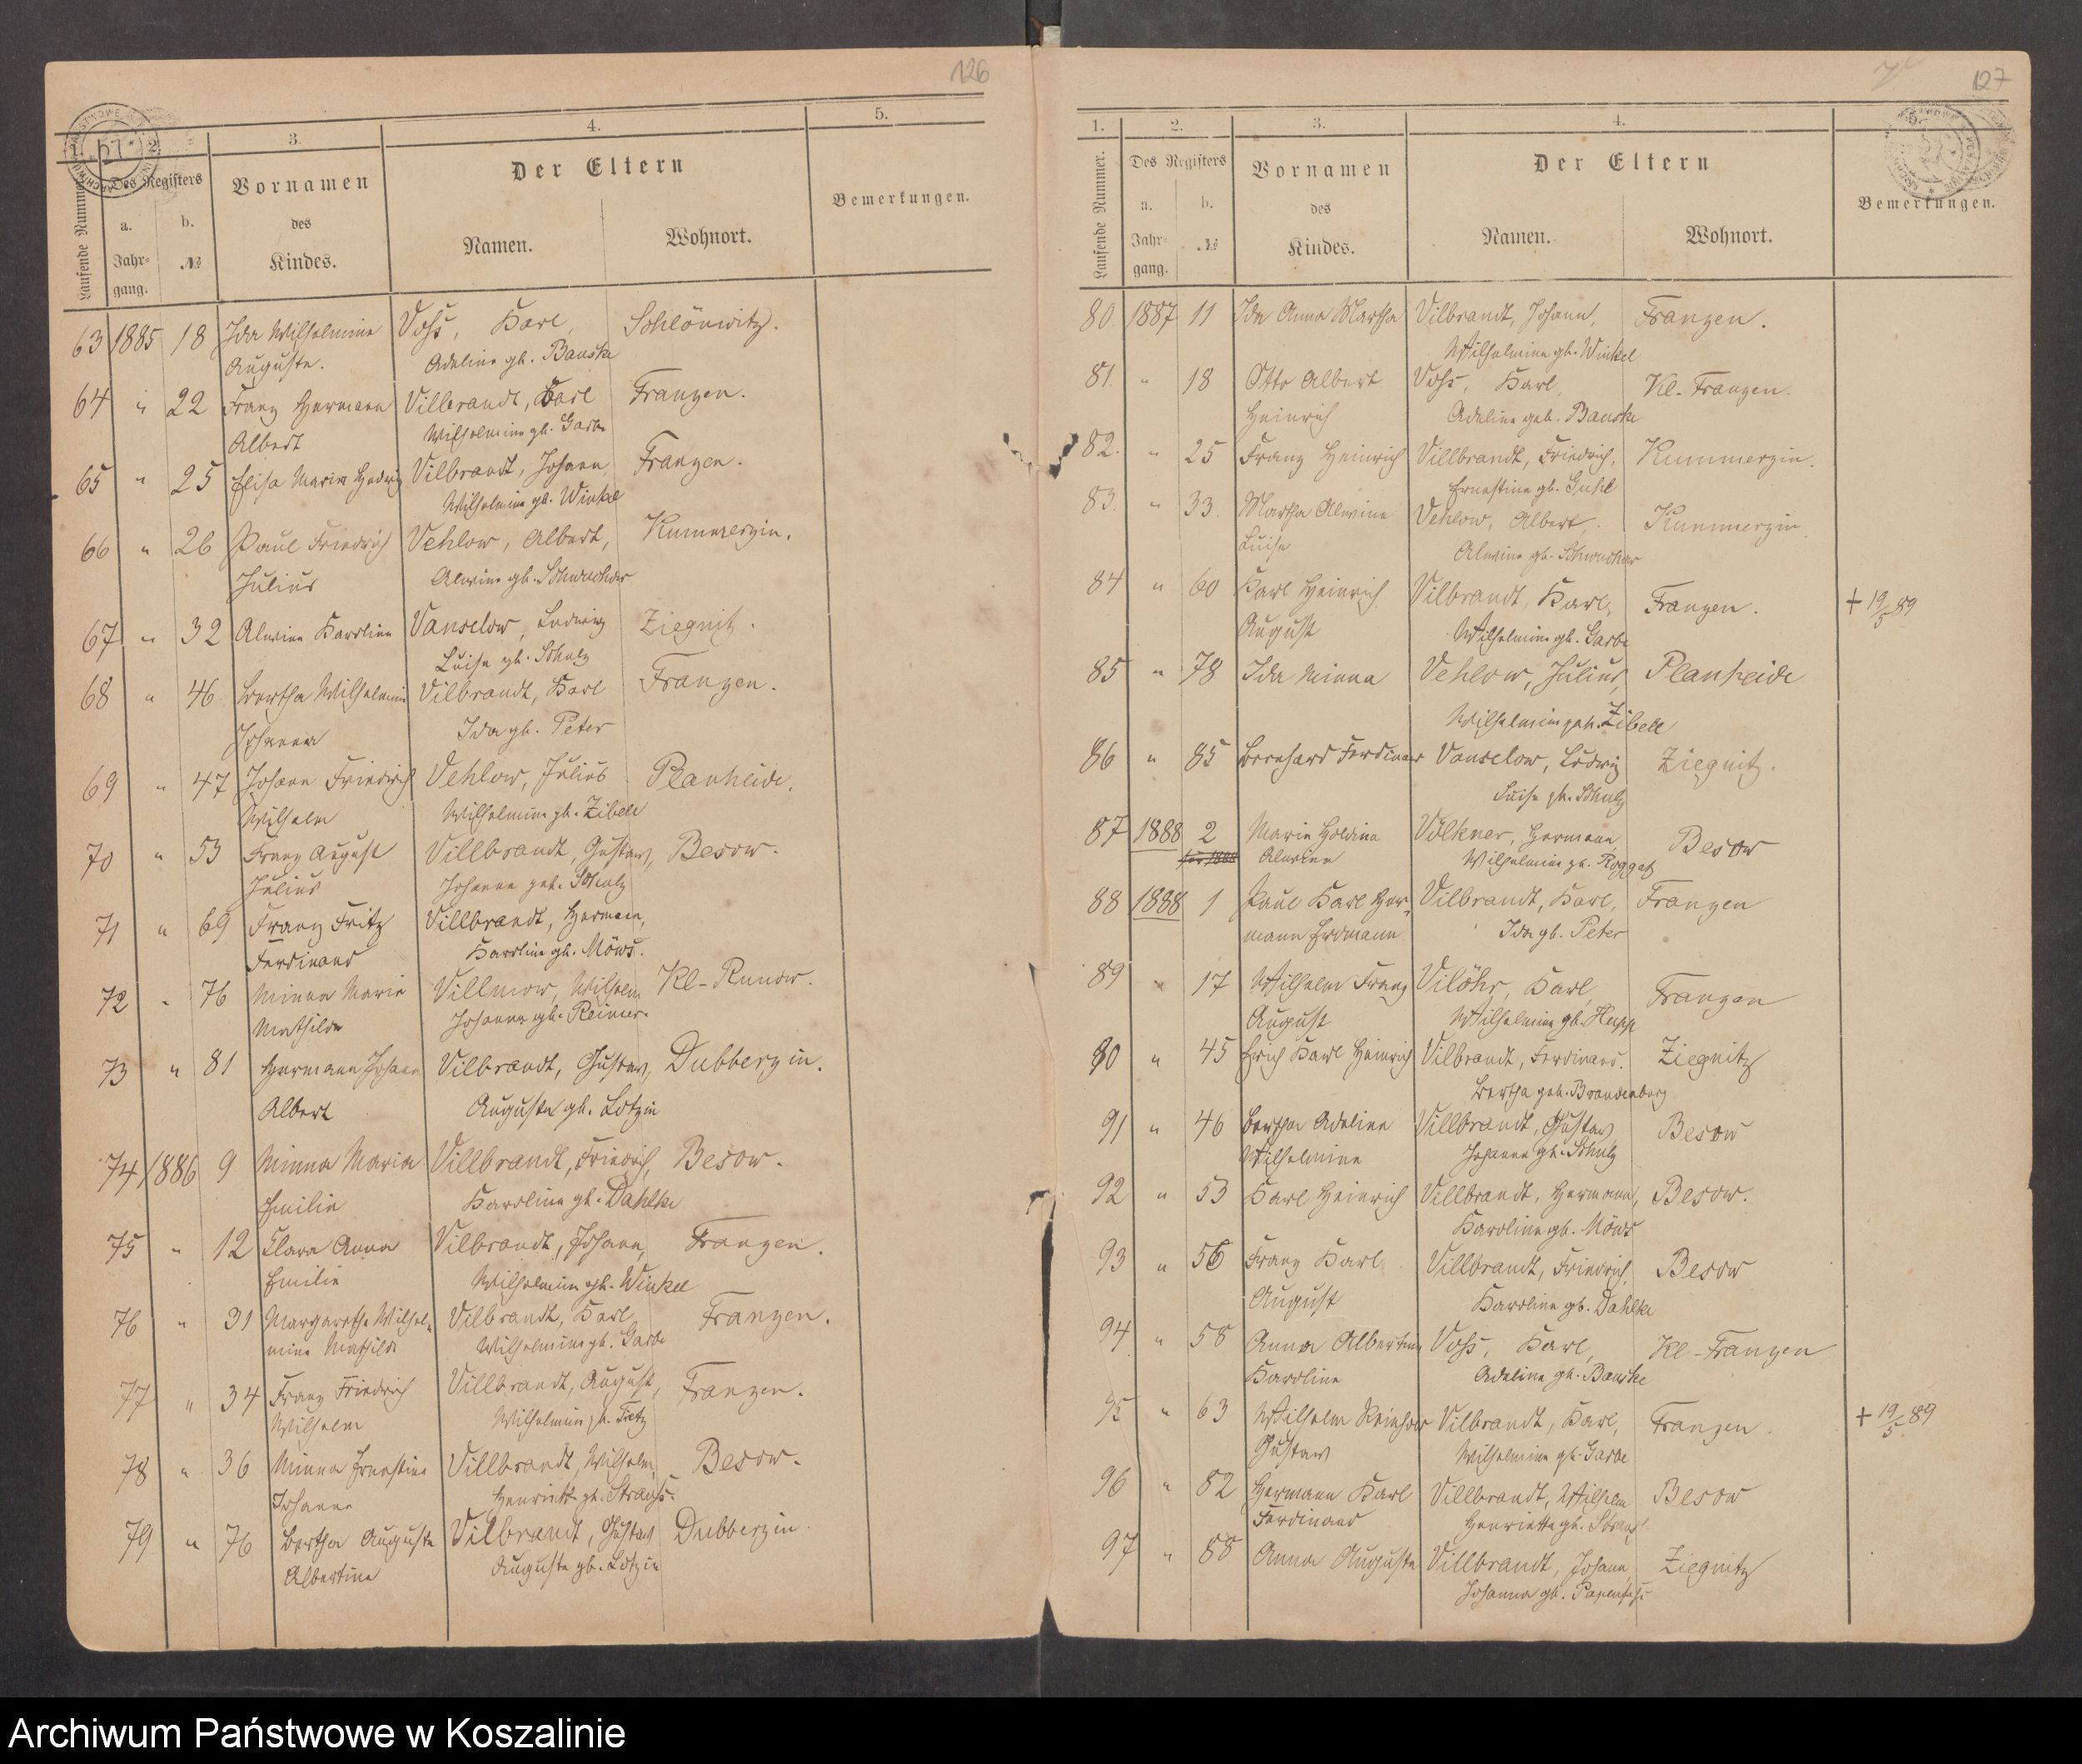 126
1. 2. 3. 4. 5.
Laufende Nummer. Des Registers Vornamen des Kindes. Der Eltern Bemerkungen.
a. Jahrgang. b. № Namen. Wohnort.
63 1885 18 Ida Wilhelmine Voß, Karl, Schlönwitz.
Auguste. Adeline gb. Banske
64 " 22 Franz Hermann Vilbrandt, Karl Franzen.
Albert Wilhelmine gb. Garbe
65 " 25 Elisa Marie Hedwig Vilbrandt, Johann, Franzen.
Wilhelmine gb. Winkel
66 " 26 Paul Friedrich Vehlow, Albert, Kummerzin.
Julius Alwine gb. Schwuchow
67 " 32 Alwine Karoline Vanselow, Ludwig Ziegnitz.
Luise gb. Schulz
68 " 46 Bertha Wilhelmine Vilbrandt, Karl Franzen.
Johanna Ida gb. Peter
69 " 47 Johann Friedrich Vehlow, Julius Planheide.
Wilhelm Wilhelmine gb. Zibell
70 " 53 Franz August Villbrandt, Gustav, Besow.
Julius Johanna geb. Schulz
71 " 69 Franz Fritz Villbrandt, Hermann,
Ferdinand Karoline gb. Möws.
72 " 76 Minna Marie Villmow, Wilhelm Kl-Runow.
Mathilde Johanna gb. Reimer.
73 " 81 Hermann Johann Vilbrandt, Gustav, Dubberzin.
Albert Auguste gb. Lotzin
74 1886 9 Minna Maria Villbrandt, Friedrich, Besow.
Emilie Karoline gb. Dahlke
75 " 12 Clara Anna Vilbrandt, Johann, Franzen.
Emilie Wilhelmine gb. Winkel
76 " 31 Margarethe Wilhel- Vilbrandt, Karl Franzen.
mine Mathilde Wilhelmine gb. Garbe
77 " 34 Franz Friedrich Villbrandt, August, Franzen.
Wilhelm Wilhelmine gb. Tietz
78 " 36 Minna Ernestine Villbrandt, Wilhelm, Besow.
Johanna Henriette gb. Strauß.
79 " 76 Bertha Auguste Vilbrandt, Gustav Dubberzin
Albertine Auguste gb. Lotzin
127
1. 2. 3. 4. 5.
Laufende Nummer. Des Registers Vornamen des Kindes. Der Eltern Bemerkungen.
a. Jahrgang. b. № Namen. Wohnort.
80. 1887 11 Ida Anna Martha Vilbrandt, Johann, Franzen.
Wilhelmine gb. Winkel
81. " 18 Otto Albert Voß, Karl, Kl-Franzen.
Heinrich Adeline geb. Banske
82. " 25 Franz Heinrich Villbrandt, Friedrich, Kummerzin.
Ernestine gb.
83. " 33. Martha Alwine Vehlow, Albert, Kummerzin.
Luise Alwine gb. Schwuchow
84 " 60 Karl Heinrich Vilbrandt, Karl, Franzen. + 19/5 89
August Wilhelmine gb. Garbe
85 " 78 Ida Minna Vehlow, Julius, Planheide
Wilhelmine geb. Zibell
86 " 85 Bernhard Ferdinand Vanselow, Ludwig Ziegnitz.
Luise gb. Schulz
87 1888 2 Marie Holdina Völkner, Hermann, Besow
Alwine Wilhelmine gb. Roggatz
88 1888 1 Paul Karl Her- Vilbrandt, Karl, Franzen
mann Erdmann Ida gb. Peter
89 " 17 Wilhelm Franz Vilöhr, Karl, Franzen
August Wilhelmine gb. Hupp
90 " 45 Erich Karl Heinrich Vilbrandt, Ferdinand. Ziegnitz
Bertha geb. Brandenburg
91 " 46 Bertha Adeline Villbrandt, Gustav Besow
Wilhelmine Johanna gb. Schulz
92 " 53 Karl Heinrich Villbrandt, Hermann, Besow.
Karoline gb. Möws
93 " 56 Franz Karl Villbrandt, Friedrich, Besow
August Karoline gb. Dahlke
94 " 58 Anna Albertine Voß, Karl, Kl-Franzen
Karoline Adeline gb. Banske
95 " 63 Wilhelm Reinhard Vilbrandt, Karl, Franzen. + 19/5 89
Gustav Wilhelmine gb. Garbe
96 " 82 Hermann Karl Villbrandt, Wilhelm Besow
Ferdinand Henriette gb. Strauß
97 " 88 Anna Auguste Villbrandt, Johann, Ziegnitz
Johanna gb. Papenfuß
Archiwum Państwowe w Koszalinie